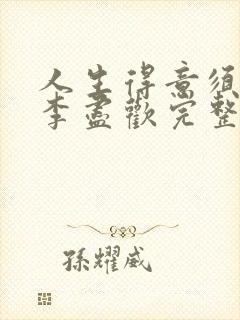 人生得意须
李盡歡完整
孫耀威